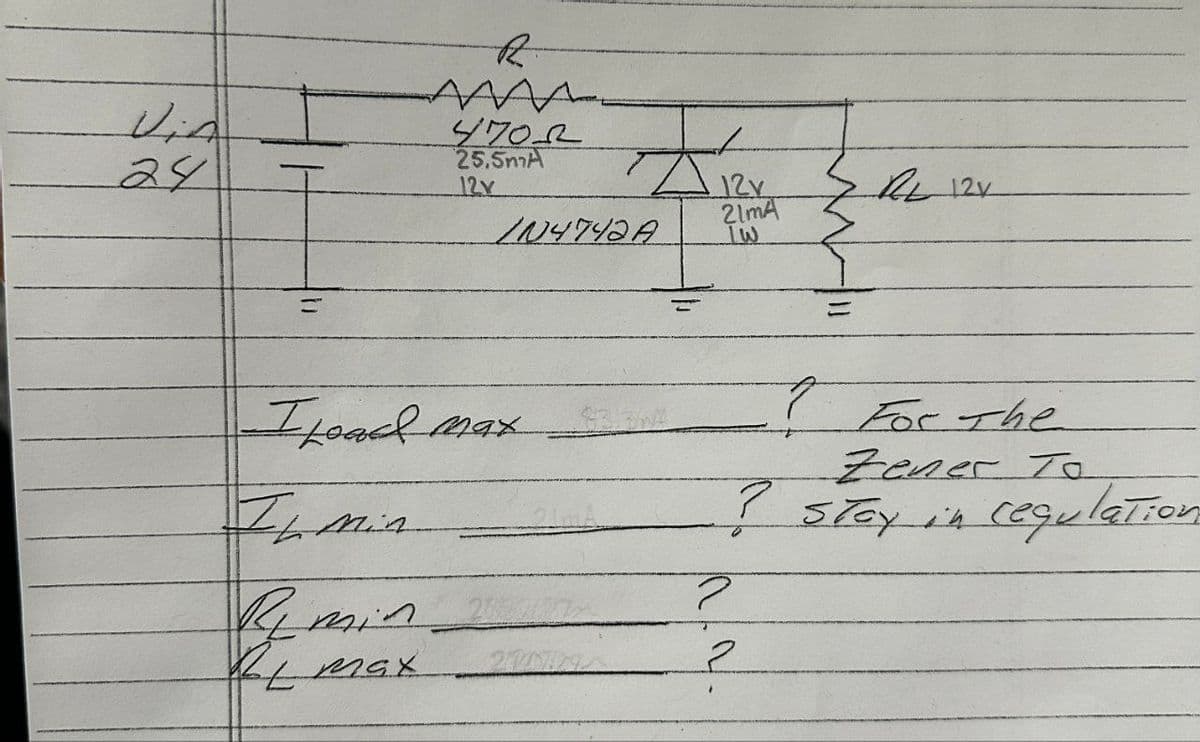 R
Vin
24
470Ω
25.5mA
12v
1N4742A
12v
21mA
1W
RL 12v
ILoad max 83.3mA ? For The
Zener To
IL min 21mA ? STay in regulaTion
RL min ?
RL max ?